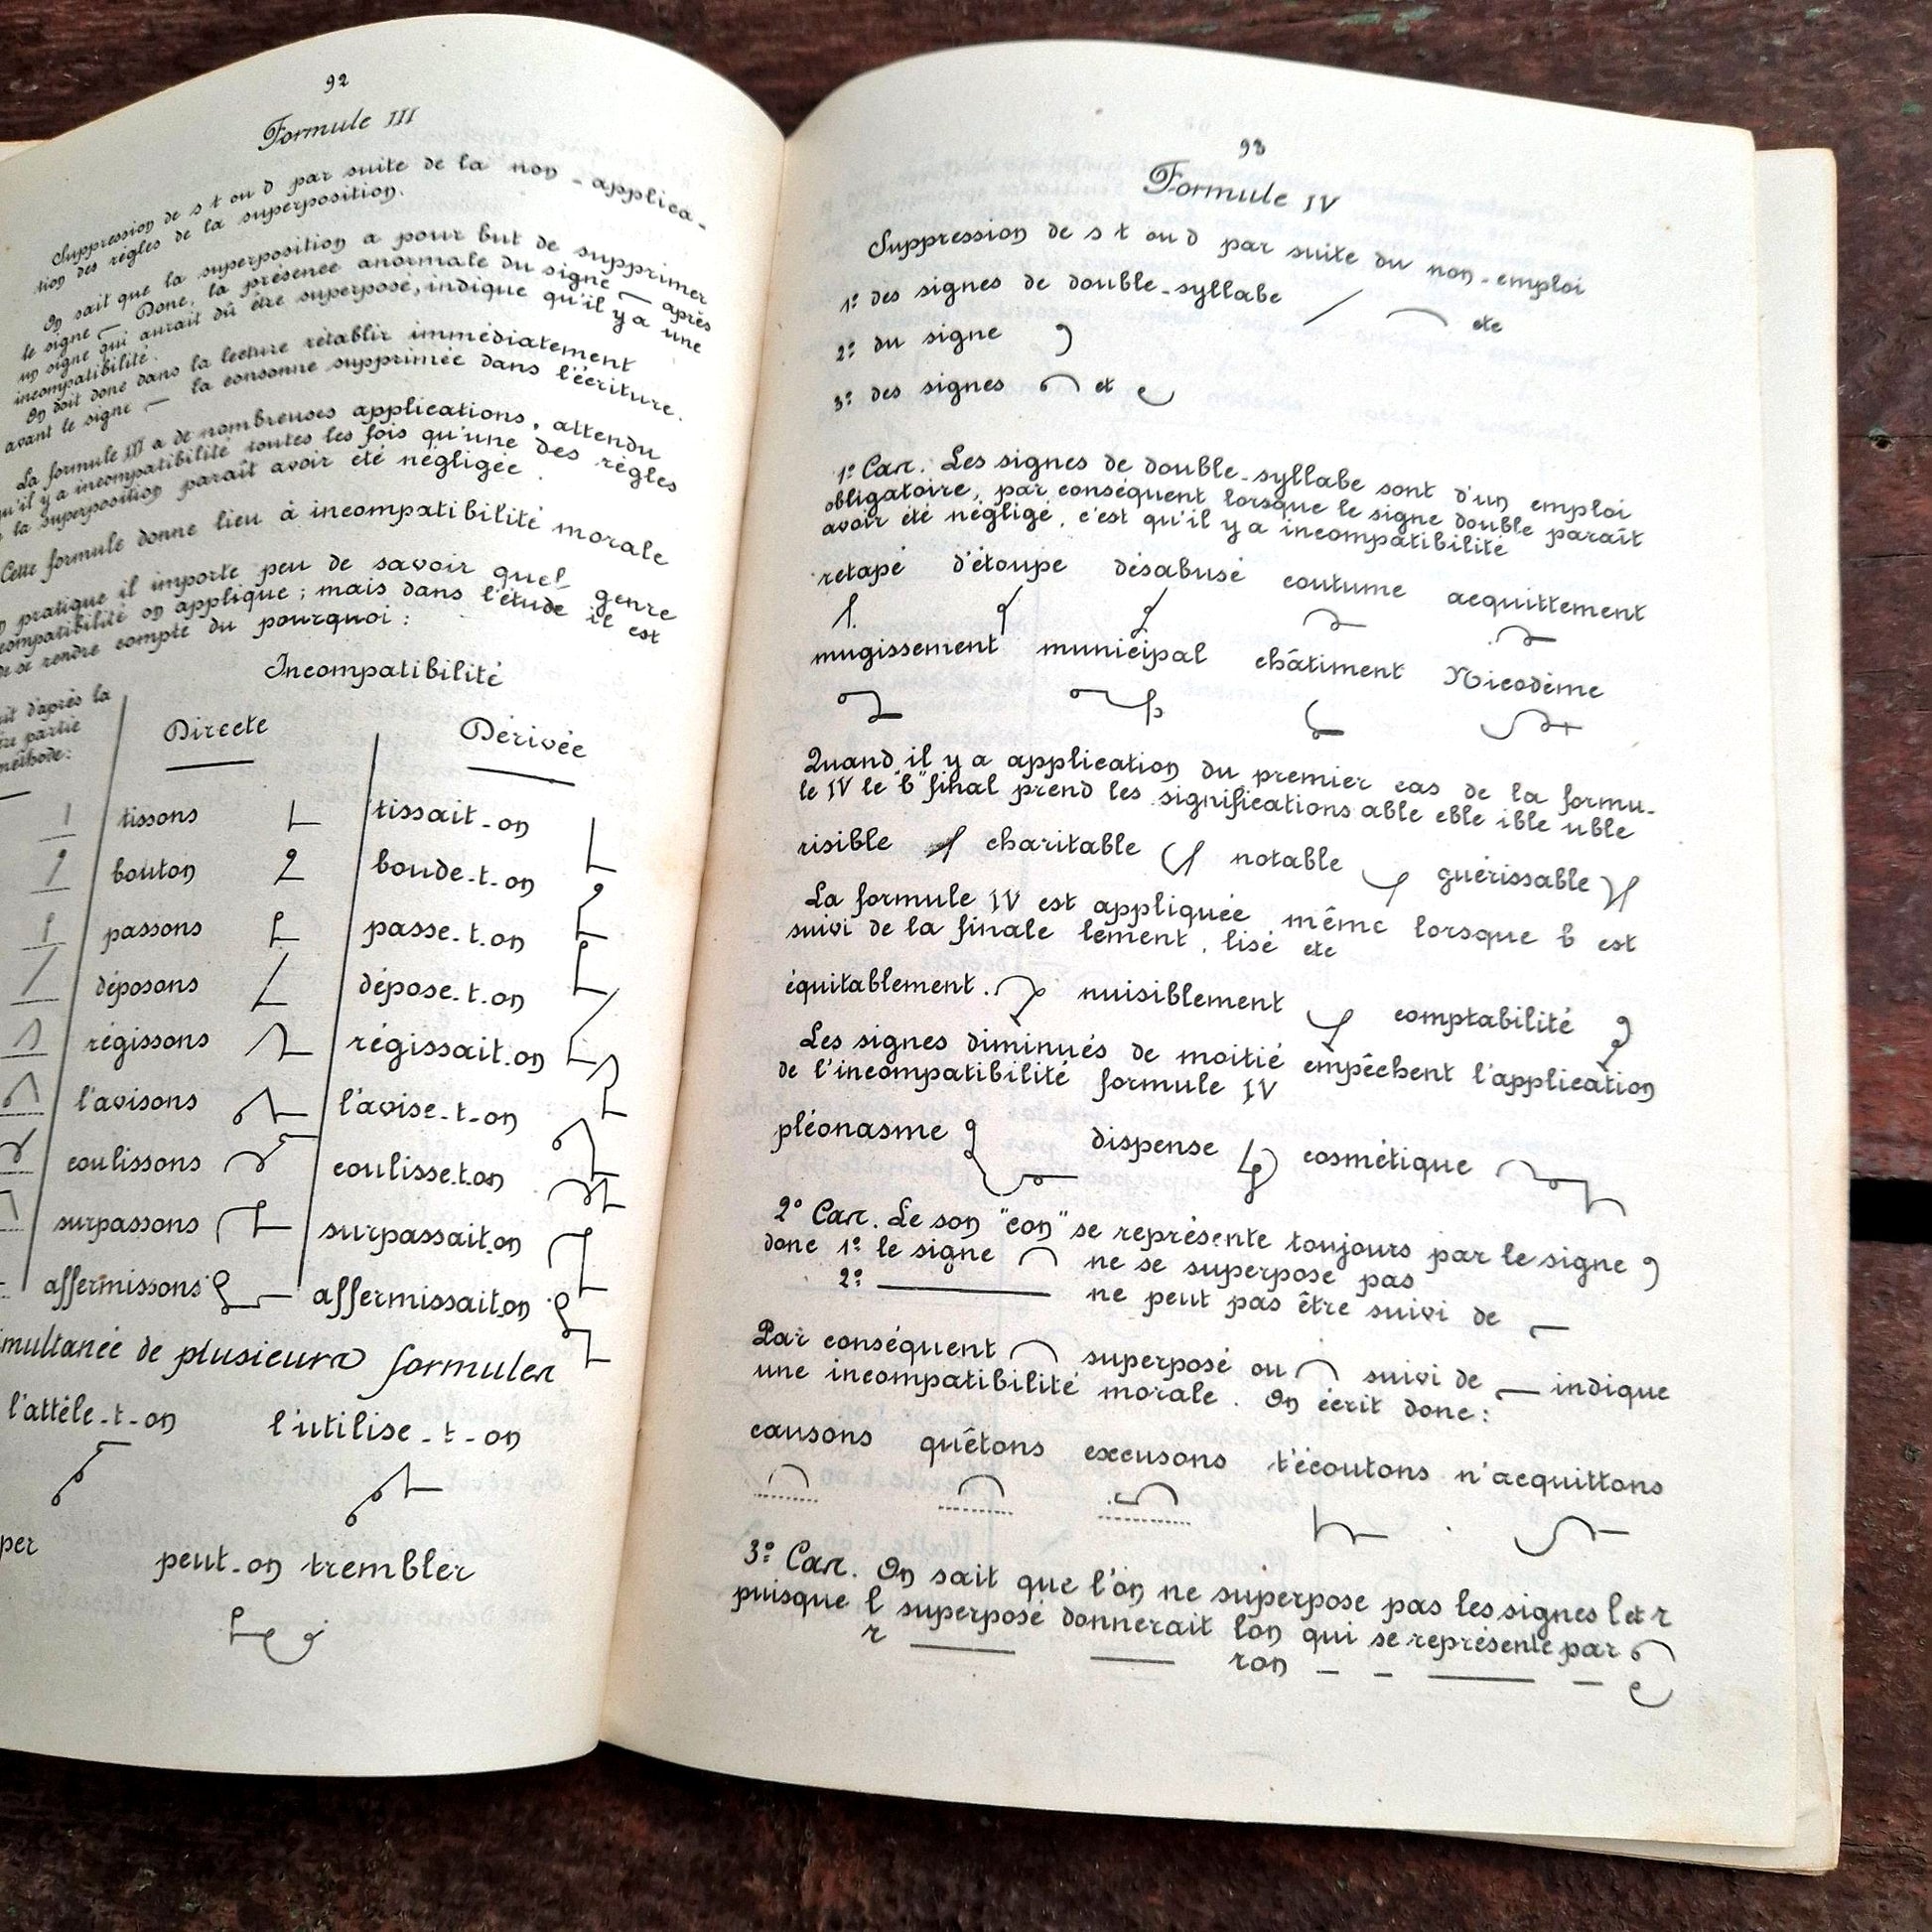 92
Formule III
Suppression de s t ou d par suite de la non-applica-
tion des règles de la superposition.
On sait que la superposition a pour but de supprimer
le signe — Donc, la présence anormale du signe — après
un signe qui aurait dû être superposé, indique qu'il y a une
incompatibilité.
On doit donc dans la lecture rétablir immédiatement
avant le signe — la consonne supprimée dans l'écriture.
La formule III a de nombreuses applications, attendu
qu'il y a incompatibilité toutes les fois qu'une des règles
la superposition paraît avoir été négligée.
Cette formule donne lieu à incompatibilité morale
pratique il importe peu de savoir quel genre
on applique ; mais dans l'étude il est
de se rendre compte du pourquoi :
Incompatibilité
d'après la
partie
Directe Dérivée
tissons tissait-on
bouton boude-t-on
passons passe-t-on
déposons dépose-t-on
régissons régissait-on
l'avisons l'avise-t-on
coulissons coulisse-t-on
surpassons surpassait-on
affermissons affermissait-on
de plusieurs formules
l'attèle-t-on l'utilise-t-on
per
peut-on trembler
93
Formule IV
Suppression de s t ou d par suite du non-emploi
1º des signes de double-syllabe etc
2º du signe
3º des signes et
1º Cas. Les signes de double-syllabe sont d'un emploi
obligatoire, par conséquent lorsque le signe double paraît
avoir été négligé, c'est qu'il y a incompatibilité
retapé d'étoupe désabusé coutume acquittement
mugissement municipal châtiment Nicodème
Quand il y a application du premier cas de la formu-
le IV le "b" final prend les significations able eble ible uble
risible charitable notable guérissable
La formule IV est appliquée même lorsque b est
suivi de la finale lement, lisé etc
équitablement. nuisiblement comptabilité
Les signes diminués de moitié empêchent l'application
de l'incompatibilité formule IV
pléonasme dispense cosmétique
2º Cas. Le son "con" se représente toujours par le signe
donc 1º le signe ne se superpose pas
2º — ne peut pas être suivi de
Par conséquent superposé ou suivi de indique
une incompatibilité morale. On écrit donc :
causons quêtons excusons t'écoutons n'acquittons
3º Cas. On sait que l'on ne superpose pas les signes l et r
puisque l superposé donnerait lon qui se représente par
r — — ron - - — -